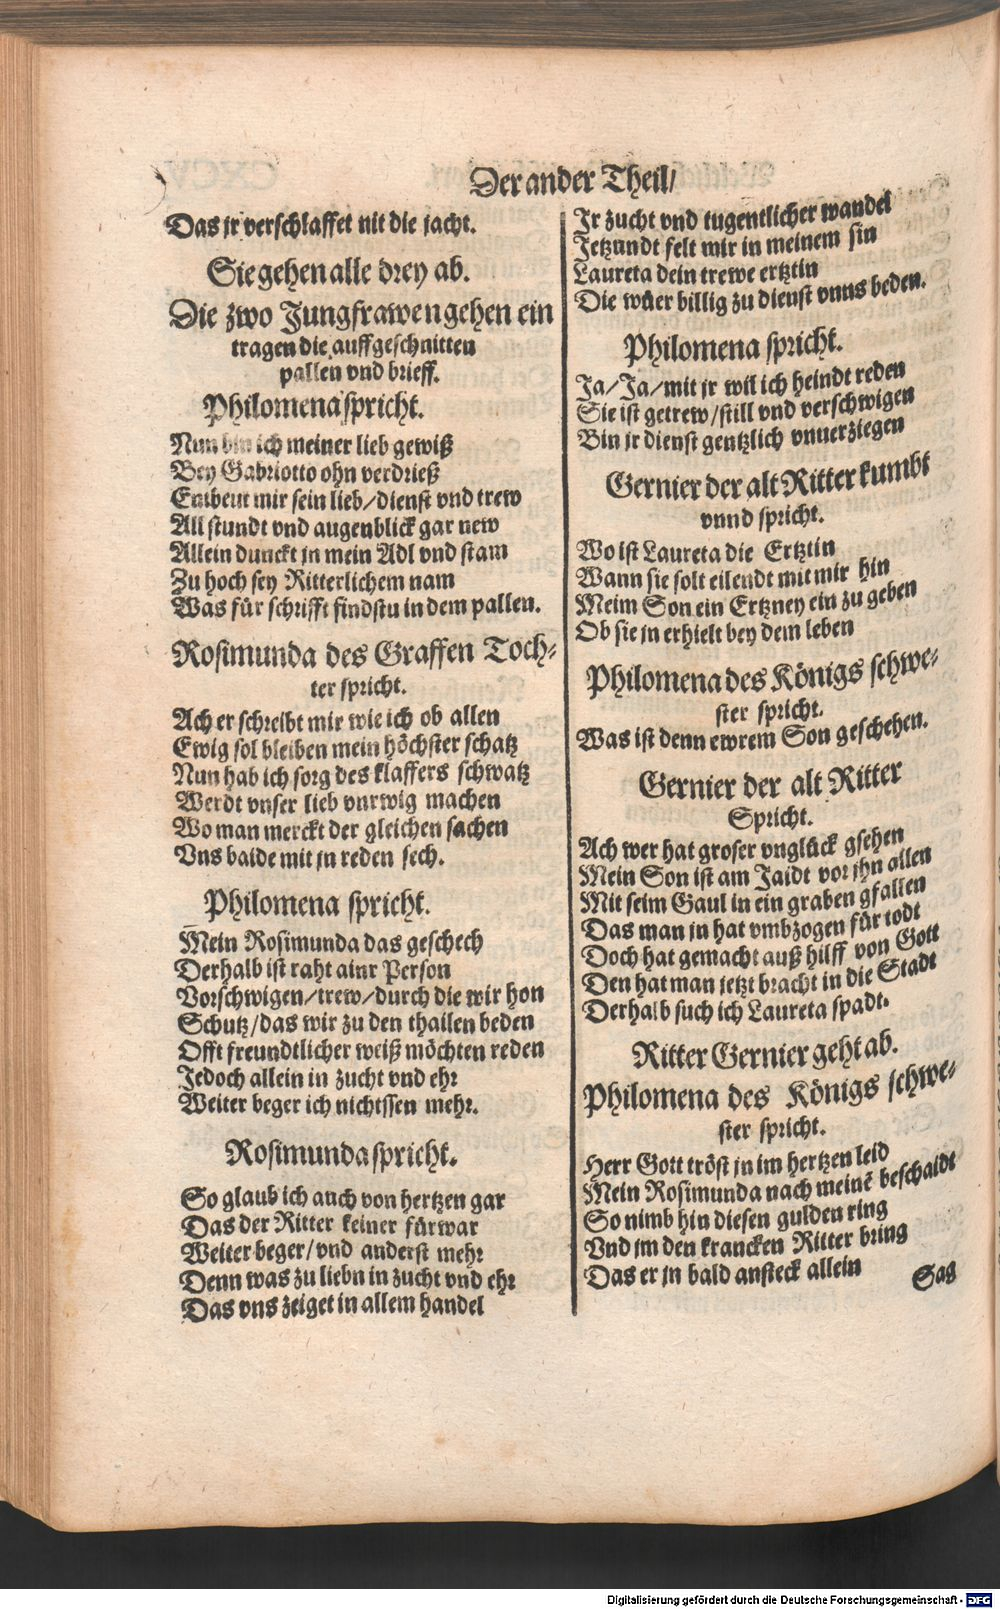 Der ander Theil/
Das jr verschlaffet nit die jacht.
Sie gehen alle drey ab.
Die zwo Jungfrawen gehen ein
tragen die auffgeschnitten
pallen vnd brieff.
Philomena spricht.
Nun bin ich meiner lieb gewiß
Bey Gabriotto ohn verdrieß
Embeut mir sein lieb/dienst vnd trew
All stundt vnd augenblick gar new
Allein dunckt jn mein Adl vnd stam
Zu hoch sey Ritterlichem nam
Was für schrifft findstu in dem pallen.
Rosimunda des Graffen Toch-
ter spricht.
Ach er schreibt mir wie ich ob allen
Ewig sol bleiben mein höchster schatz
Nun hab ich sorg des klaffers schwatz
Werdt vnser lieb vnrwig machen
Wo man merckt der gleichen sachen
Vns baide mit jn reden sech.
Philomena spricht.
Mein Rosimunda das geschech
Derhalb ist raht ainr Person
Vorschwigen/trew/durch die wir hon
Schutz/das wir zu den thailen beden
Offt freundtlicher weiß möchten reden
Jedoch allein in zucht vnd ehr
Weiter beger ich nichtssen mehr.
Rosimunda spricht.
So glaub ich auch von hertzen gar
Das der Ritter keiner fürwar
Weiter beger/vnd anderst mehr
Denn was zu liebn in zucht vnd ehr
Das vns zeiget in allem handel
Jr zucht vnd tugentlicher wandel
Jetzundt felt mir in meinem sin
Laureta dein trewe ertztin
Die wüer billig zu dienst vnns beden.
Philomena spricht.
Ja/Ja/mit jr wil ich heindt reden
Sie ist getrew/still vnd verschwigen
Bin jr dienst gentzlich vnuerziegen
Gernier der alt Ritter kumbt
vnnd spricht.
Wo ist Laureta die Ertztin
Wann sie solt eilendt mit mir hin
Meim Son ein Ertzney ein zu geben
Ob sie jn erhielt bey dem leben
Philomena des Königs schwe-
ster spricht.
Was ist denn ewrem Son geschehen.
Gernier der alt Ritter
Spricht.
Ach wer hat groser vnglück gsehen
Mein Son ist am Jaidt vor jhn allen
Mit seim Gaul in ein graben gfallen
Das man jn hat vmbzogen für todt
Doch hat gemacht auß hilff von Gott
Den hat man jetzt bracht in die Stadt
Derhalb such ich Laureta spadt.
Ritter Gernier geht ab.
Philomena des Königs schwe-
ster spricht.
Herr Gott tröst jn im hertzen leid
Mein Rosimunda nach meinē beschaidt
So nimb hin diesen gulden ring
Vnd jm den krancken Ritter bring
Das er jn bald ansteck allein
Sag
Digitalisierung gefördert durch die Deutsche Forschungsgemeinschaft - DFG